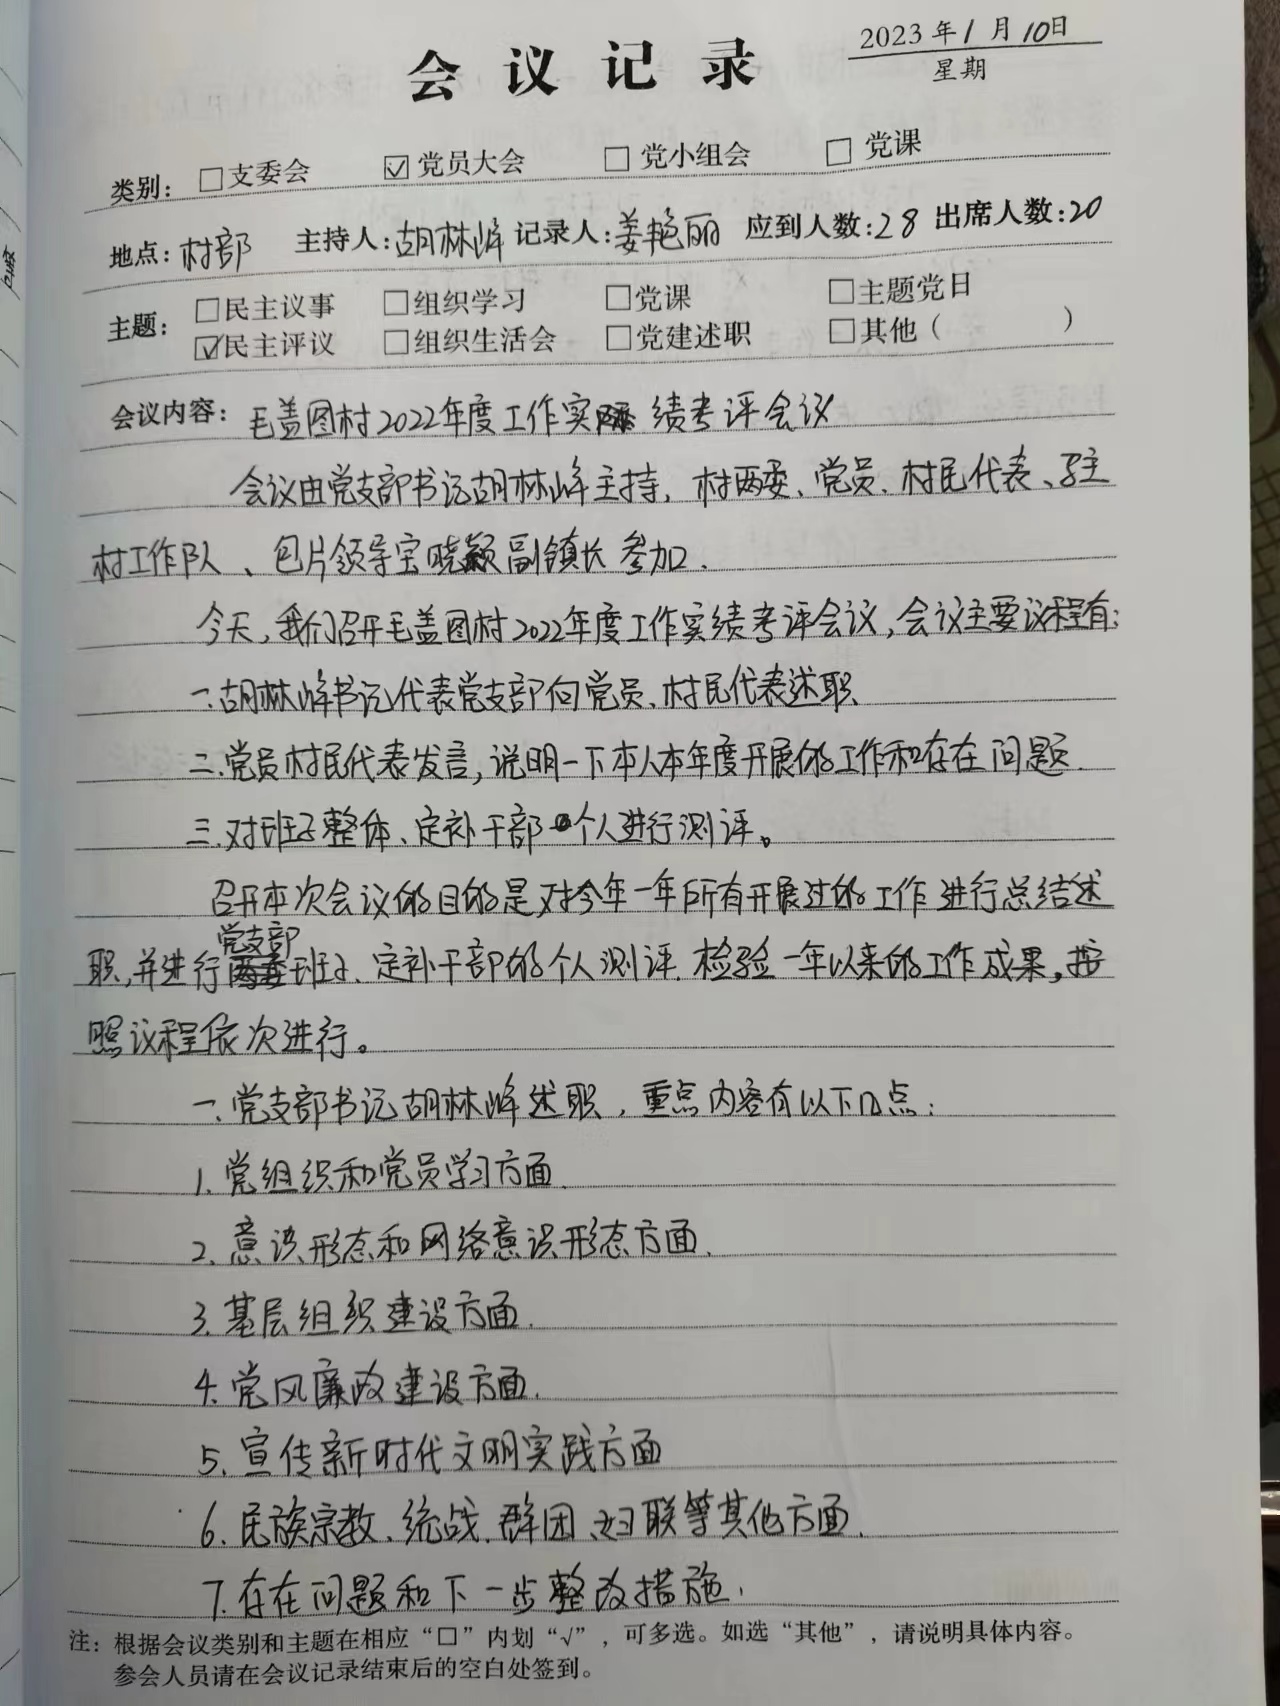 会议记录
2023年1月10日
星期
类别：□支委会 ☑党员大会 □党小组会 □党课
地点：村部 主持人：胡林峰 记录人：姜艳丽 应到人数：28 出席人数：20
主题：□民主议事 □组织学习 □党课 □主题党日
☑民主评议 □组织生活会 □党建述职 □其他（ ）
会议内容：毛盖图村2022年度工作实绩考评会议
会议由党支部书记胡林峰主持，村两委、党员、村民代表、驻
村工作队、包片领导宝晓颖副镇长参加.
今天，我们召开毛盖图村2022年度工作实绩考评会议，会议主要议程有：
一.胡林峰书记代表党支部向党员、村民代表述职
二.党员村民代表发言，说明一下本人本年度开展的工作和存在问题.
三.对班子整体、定补干部个人进行测评。
召开本次会议的目的是对今年一年所有开展过的工作进行总结述
职，并进行党支部班子、定补干部的个人测评.检验一年以来的工作成果，按
照议程依次进行。
一.党支部书记胡林峰述职，重点内容有以下几点：
1.党组织和党员学习方面.
2.意识形态和网络意识形态方面.
3.基层组织建设方面.
4.党风廉政建设方面.
5.宣传新时代文明实践方面
6.民族宗教.统战.群团.妇联等其他方面.
7.存在问题和下一步整改措施.
注：根据会议类别和主题在相应“□”内划“√”，可多选。如选“其他”，请说明具体内容。
参会人员请在会议记录结束后的空白处签到。